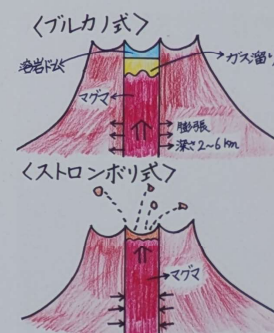 〈ブルカノ式〉
溶岩ドーム
ガス溜り
マグマ
膨張
深さ2~6km
〈ストロンボリ式〉
マグマ